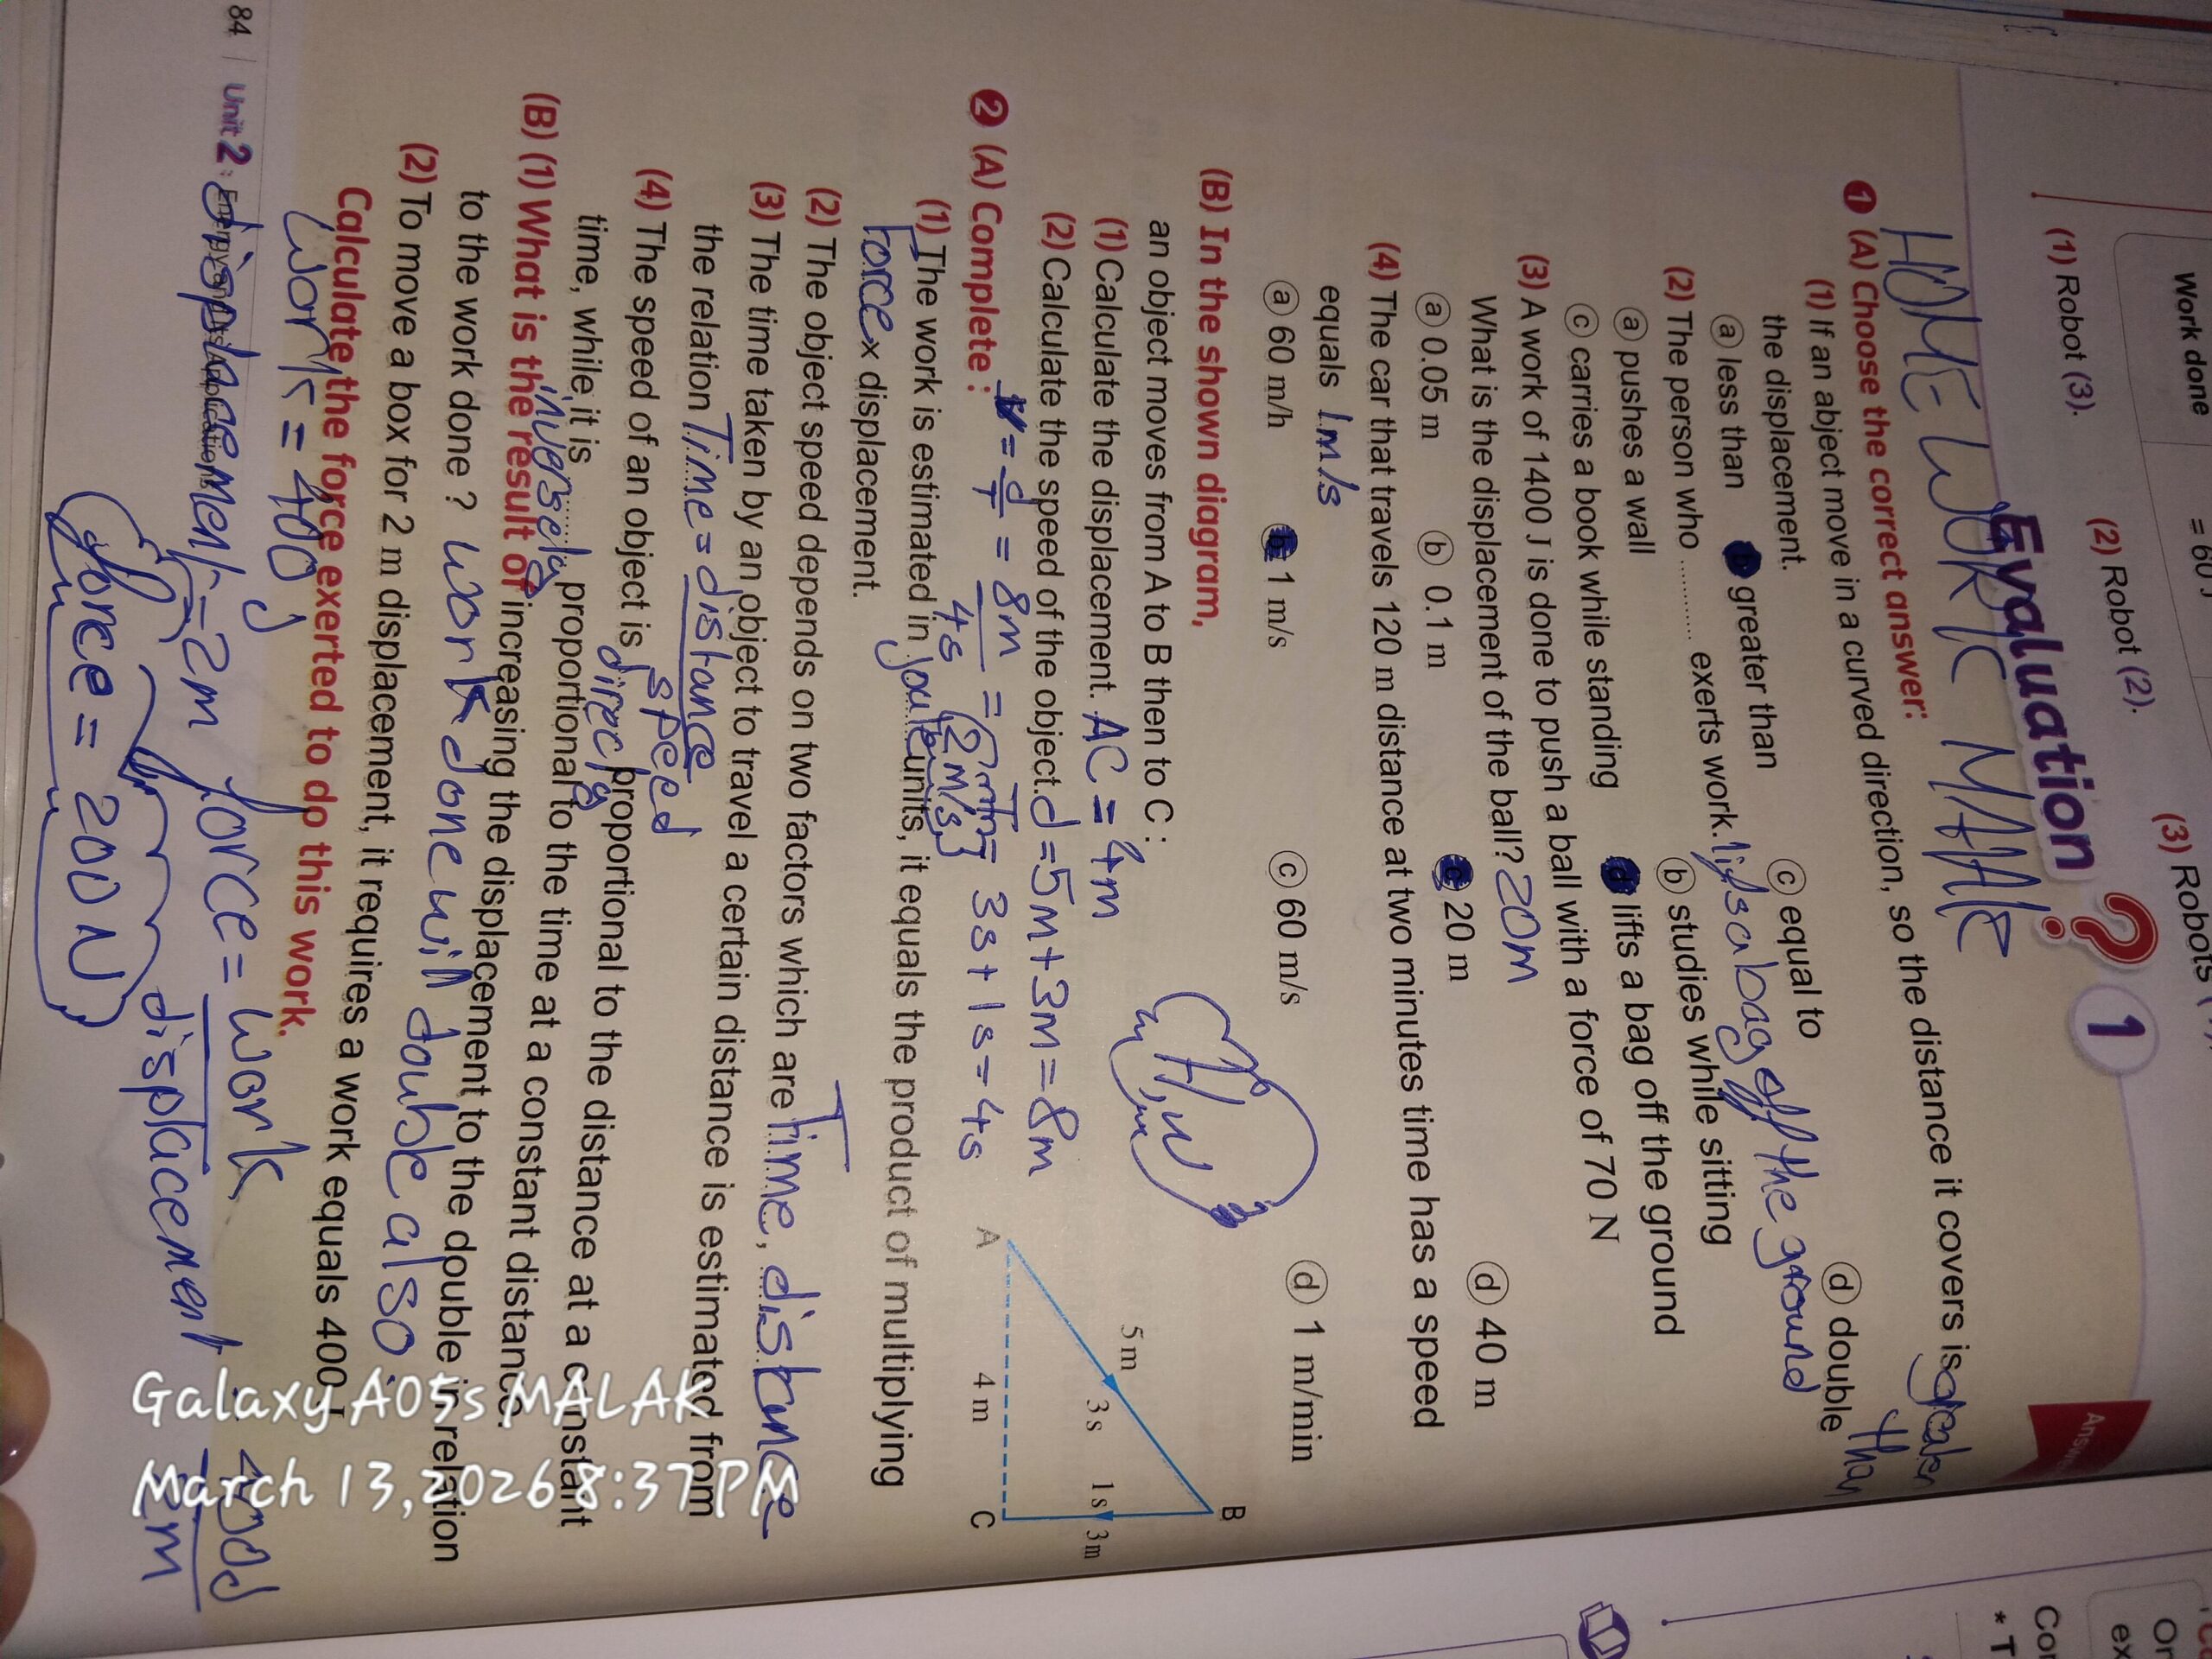 Work done
= 60 J
(1) Robot (3).
(2) Robot (2).
(3) Robots
Evaluation ? 1
Answer
HOMEWORK MALAK
1 (A) Choose the correct answer:
(1) If an abject move in a curved direction, so the distance it covers is greater than
the displacement.
a less than
b greater than
c equal to
d double
(2) The person who .......... exerts work. lifts a bag off the ground
a pushes a wall
b studies while sitting
c carries a book while standing
d lifts a bag off the ground
(3) A work of 1400 J is done to push a ball with a force of 70 N
What is the displacement of the ball? 20m
a 0.05 m
b 0.1 m
c 20 m
d 40 m
(4) The car that travels 120 m distance at two minutes time has a speed
equals 1m/s
a 60 m/h
b 1 m/s
c 60 m/s
d 1 m/min
H.w
(B) In the shown diagram,
an object moves from A to B then to C :
(1) Calculate the displacement. AC = 4m
(2) Calculate the speed of the object. d=5m+3m=8m
T= 3s+1s=4s
v = d/T = 8m/4s = 2m/s
A
B
C
5 m
3 s
1 s
3 m
4 m
2 (A) Complete :
(1) The work is estimated in joule units, it equals the product of multiplying
Force x displacement.
(2) The object speed depends on two factors which are Time, distance
(3) The time taken by an object to travel a certain distance is estimated from
the relation Time = distance
speed
(4) The speed of an object is directly proportional to the distance at a constant
time, while it is inversely proportional to the time at a constant distance.
(B) (1) What is the result of increasing the displacement to the double in relation
to the work done ? work done will double also
(2) To move a box for 2 m displacement, it requires a work equals 400 J
Calculate the force exerted to do this work.
work = 400 J
displacement = 2m
force = work
displacement
400J
2m
force = 200 N
84 | Unit 2 :
Galaxy A05s MALAK
March 13, 2026 8:37 PM